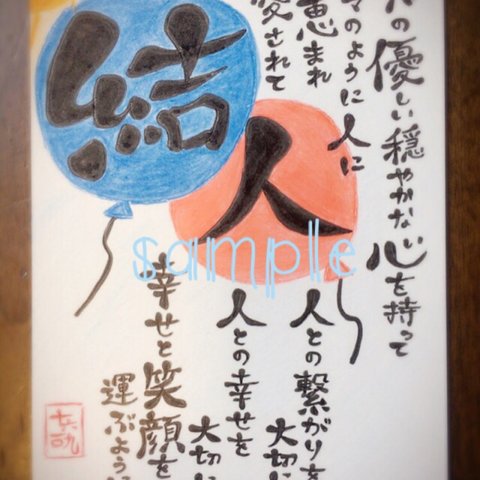 の優しい穏やかな心を持って
のように人に
恵まれ
愛されて
結
人
人との繋がりを
大切に
人との幸せを
大切に
幸せと笑顔を
運ぶように
sample